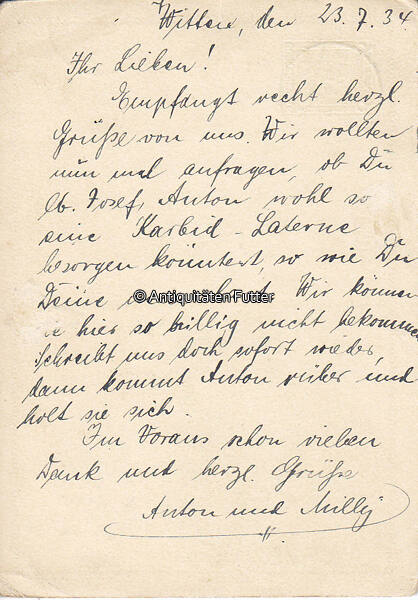 Witten, den 23.7.34.
Ihr Lieben!
Empfangt recht herzl.
Grüße von uns. Wir wollten
nun mal anfragen, ob Du
lb. Josef, Anton wohl so
eine Karbid-Laterne
besorgen könntest, so wie Du
Deine Wir können
© Antiquitäten Futter
hier so billig nicht bekommen
schreibt uns doch sofort wieder,
dann kommt Anton rüber und
holt sie sich.
Im Voraus schon vielen
Dank und herzl. Grüße
Anton und Milly